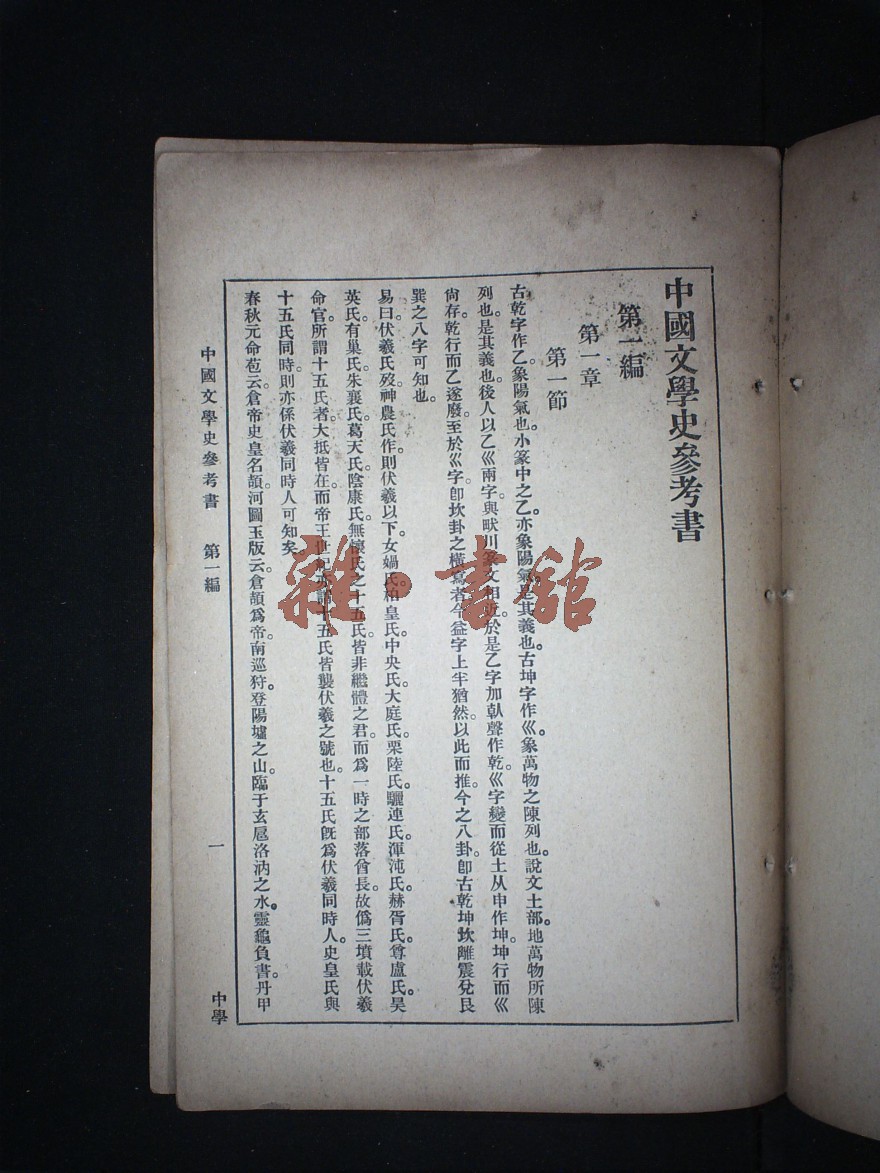 中國文學史參考書
第一編
第一章
第一節
古乾字作乙。象陽氣也。小篆中之乙。亦象陽氣。是其義也。古坤字作巛。象萬物之陳列也。說文土部。地萬物所陳
列也。是其義也。後人以乙巛兩字。與畎川篆文相近。於是乙字加倝聲作乾。巛字變而從土从申作坤。坤行而巛
尙存。乾行而乙遂廢。至於巛字。卽坎卦之橫寫者。今益字上半猶然。以此而推。今之八卦。卽古乾坤坎離震兌艮
巽之八字可知也。
易曰。伏羲氏歿。神農氏作。則伏羲以下。女媧氏。柏皇氏。中央氏。大庭氏。栗陸氏。驪連氏。渾沌氏。赫胥氏。尊盧氏。昊
英氏。有巢氏。朱襄氏。葛天氏。陰康氏。無懷氏之十五氏。皆非繼體之君。而爲一時之部落酋長。故僞三墳載伏羲
命官。所謂十五氏者。大抵皆在。而帝王世紀亦謂十五氏皆襲伏羲之號也。十五氏旣爲伏羲同時人。史皇氏與
十五氏同時。則亦係伏羲同時人可知矣。
春秋元命苞云。倉帝史皇名頡。河圖玉版云。倉頡爲帝。南巡狩。登陽墟之山。臨于玄扈洛汭之水。靈龜負書。丹甲
中國文學史參考書 第一編 一 中學
雜·書館